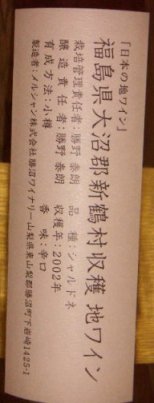 「日本の地ワイン」
福島県大沼郡新鶴村収穫 地ワイン
栽培管理責任者:勝野 泰朗 品 種:シャルドネ
醸造責任者:勝野 泰朗 収穫年:2002年
育成方法:小樽 香 味:辛口
製造者:メルシャン株式会社 勝沼ワイナリー 山梨県東山梨郡勝沼町下岩崎1425-1